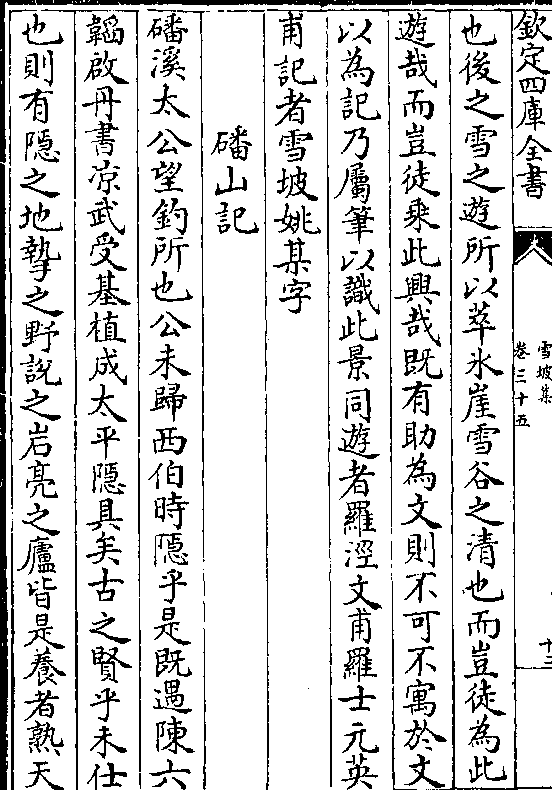 欽定四庫全書
雪坡集
卷三十五
十三
也後之雪之遊所以萃氷崖雪谷之清也而豈徒為此
遊哉而豈徒乘此興哉既有助為文則不可不寓於文
以為記乃屬筆以識此景同遊者羅涇文甫羅士元英
甫記者雪坡姚某字
磻山記
磻溪太公望釣所也公未歸西伯時隠乎是既遇陳六
韜啟丹書凉武受基植成太平隠具矣古之賢乎未仕
也則有隠之地摯之野說之岩亮之廬皆是養者熟天